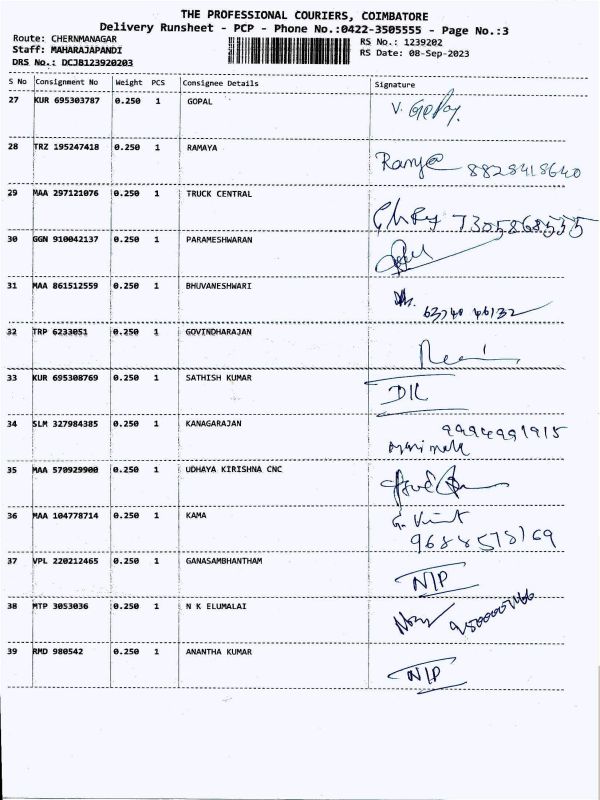 THE PROFESSIONAL COURIERS, COIMBATORE
Delivery Runsheet - PCP - Phone No.:0422-3505555 - Page No.:3
Route: CHERNMANAGAR
Staff: MAHARAJAPANDI
DRS No.: DCJB123920203
RS No.: 1239202
RS Date: 08-Sep-2023
S No Consignment No Weight PCS Consignee Details Signature
27 KUR 695303787 0.250 1 GOPAL V. Gopay.
28 TRZ 195247418 0.250 1 RAMAYA 8828418640
29 MAA 297121076 0.250 1 TRUCK CENTRAL 7305868535
30 GGN 910042137 0.250 1 PARAMESHWARAN
31 MAA 861512559 0.250 1 BHUVANESHWARI 63740 46132
32 TRP 6233051 0.250 1 GOVINDHARAJAN
33 KUR 695308769 0.250 1 SATHISH KUMAR DIL
34 SLM 327984385 0.250 1 KANAGARAJAN 9994991915
35 MAA 570929900 0.250 1 UDHAYA KIRISHNA CNC
36 MAA 104778714 0.250 1 KAMA 9688578169
37 VPL 220212465 0.250 1 GANASAMBHANTHAM N/P
38 MTP 3053036 0.250 1 N K ELUMALAI
39 RMD 980542 0.250 1 ANANTHA KUMAR N/P